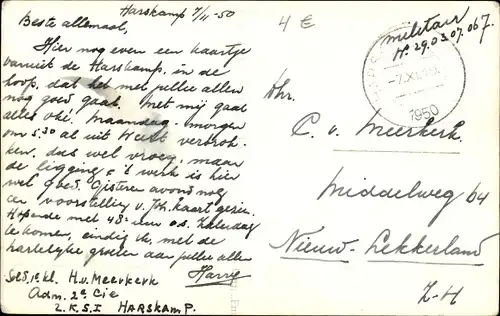 Harskamp 7/11-50
Beste allemaal,
Hier nog even een kaartje
vanuit de Harskamp, in de
hoop, dat het met jullie allen
nog goed gaat. Met mij gaat
alles oké. Maandag-morgen
om 5.30 al uit Weert vertrok-
ken, das wel vroeg, maar
de ligging + 't werk is hier
wel goed. Gisteren avond nog
een voorstelling v. Joh. Kaart gezien.
Hopende met 48 uur a.s. Zaterdag
te komen, eindig ik, met de
hartelijke groeten aan jullie allen
Harry
Sold. 1e kl. H. v. Meerkerk
Adm. 2e Cie
2. K.S.I HARSKAMP.
4 €
militair
No. 29.03.07.067.
-7.XI.
1950
Dhr.
C. v. Meerkerk
Middelweg 64
Nieuw-Lekkerland
Z-H